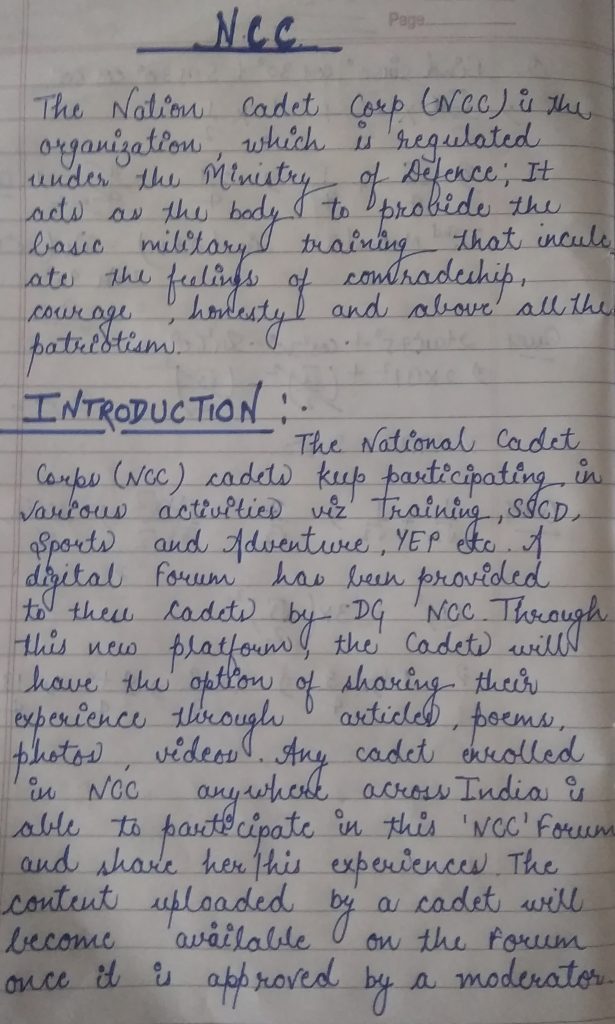 Page
NCC
The Nation Cadet Corp (NCC) is the
organization, which is regulated
under the Ministry of Defence; It
acts as the body to provide the
basic military training that inculc
ate the feelings of comradeship,
courage, honesty and above all the
patriotism.
INTRODUCTION :-
The National Cadet
Corps (NCC) cadets keep participating in
various activities viz Training, SSCD,
Sports and Adventure, YEP etc. A
digital forum has been provided
to these Cadets by DG NCC. Through
this new platform, the Cadets will
have the option of sharing their
experience through articles, poems,
photos, videos. Any cadet enrolled
in NCC anywhere across India is
able to participate in this 'NCC' Forum
and share her/his experiences. The
content uploaded by a cadet will
become available on the Forum
once it is approved by a moderator.